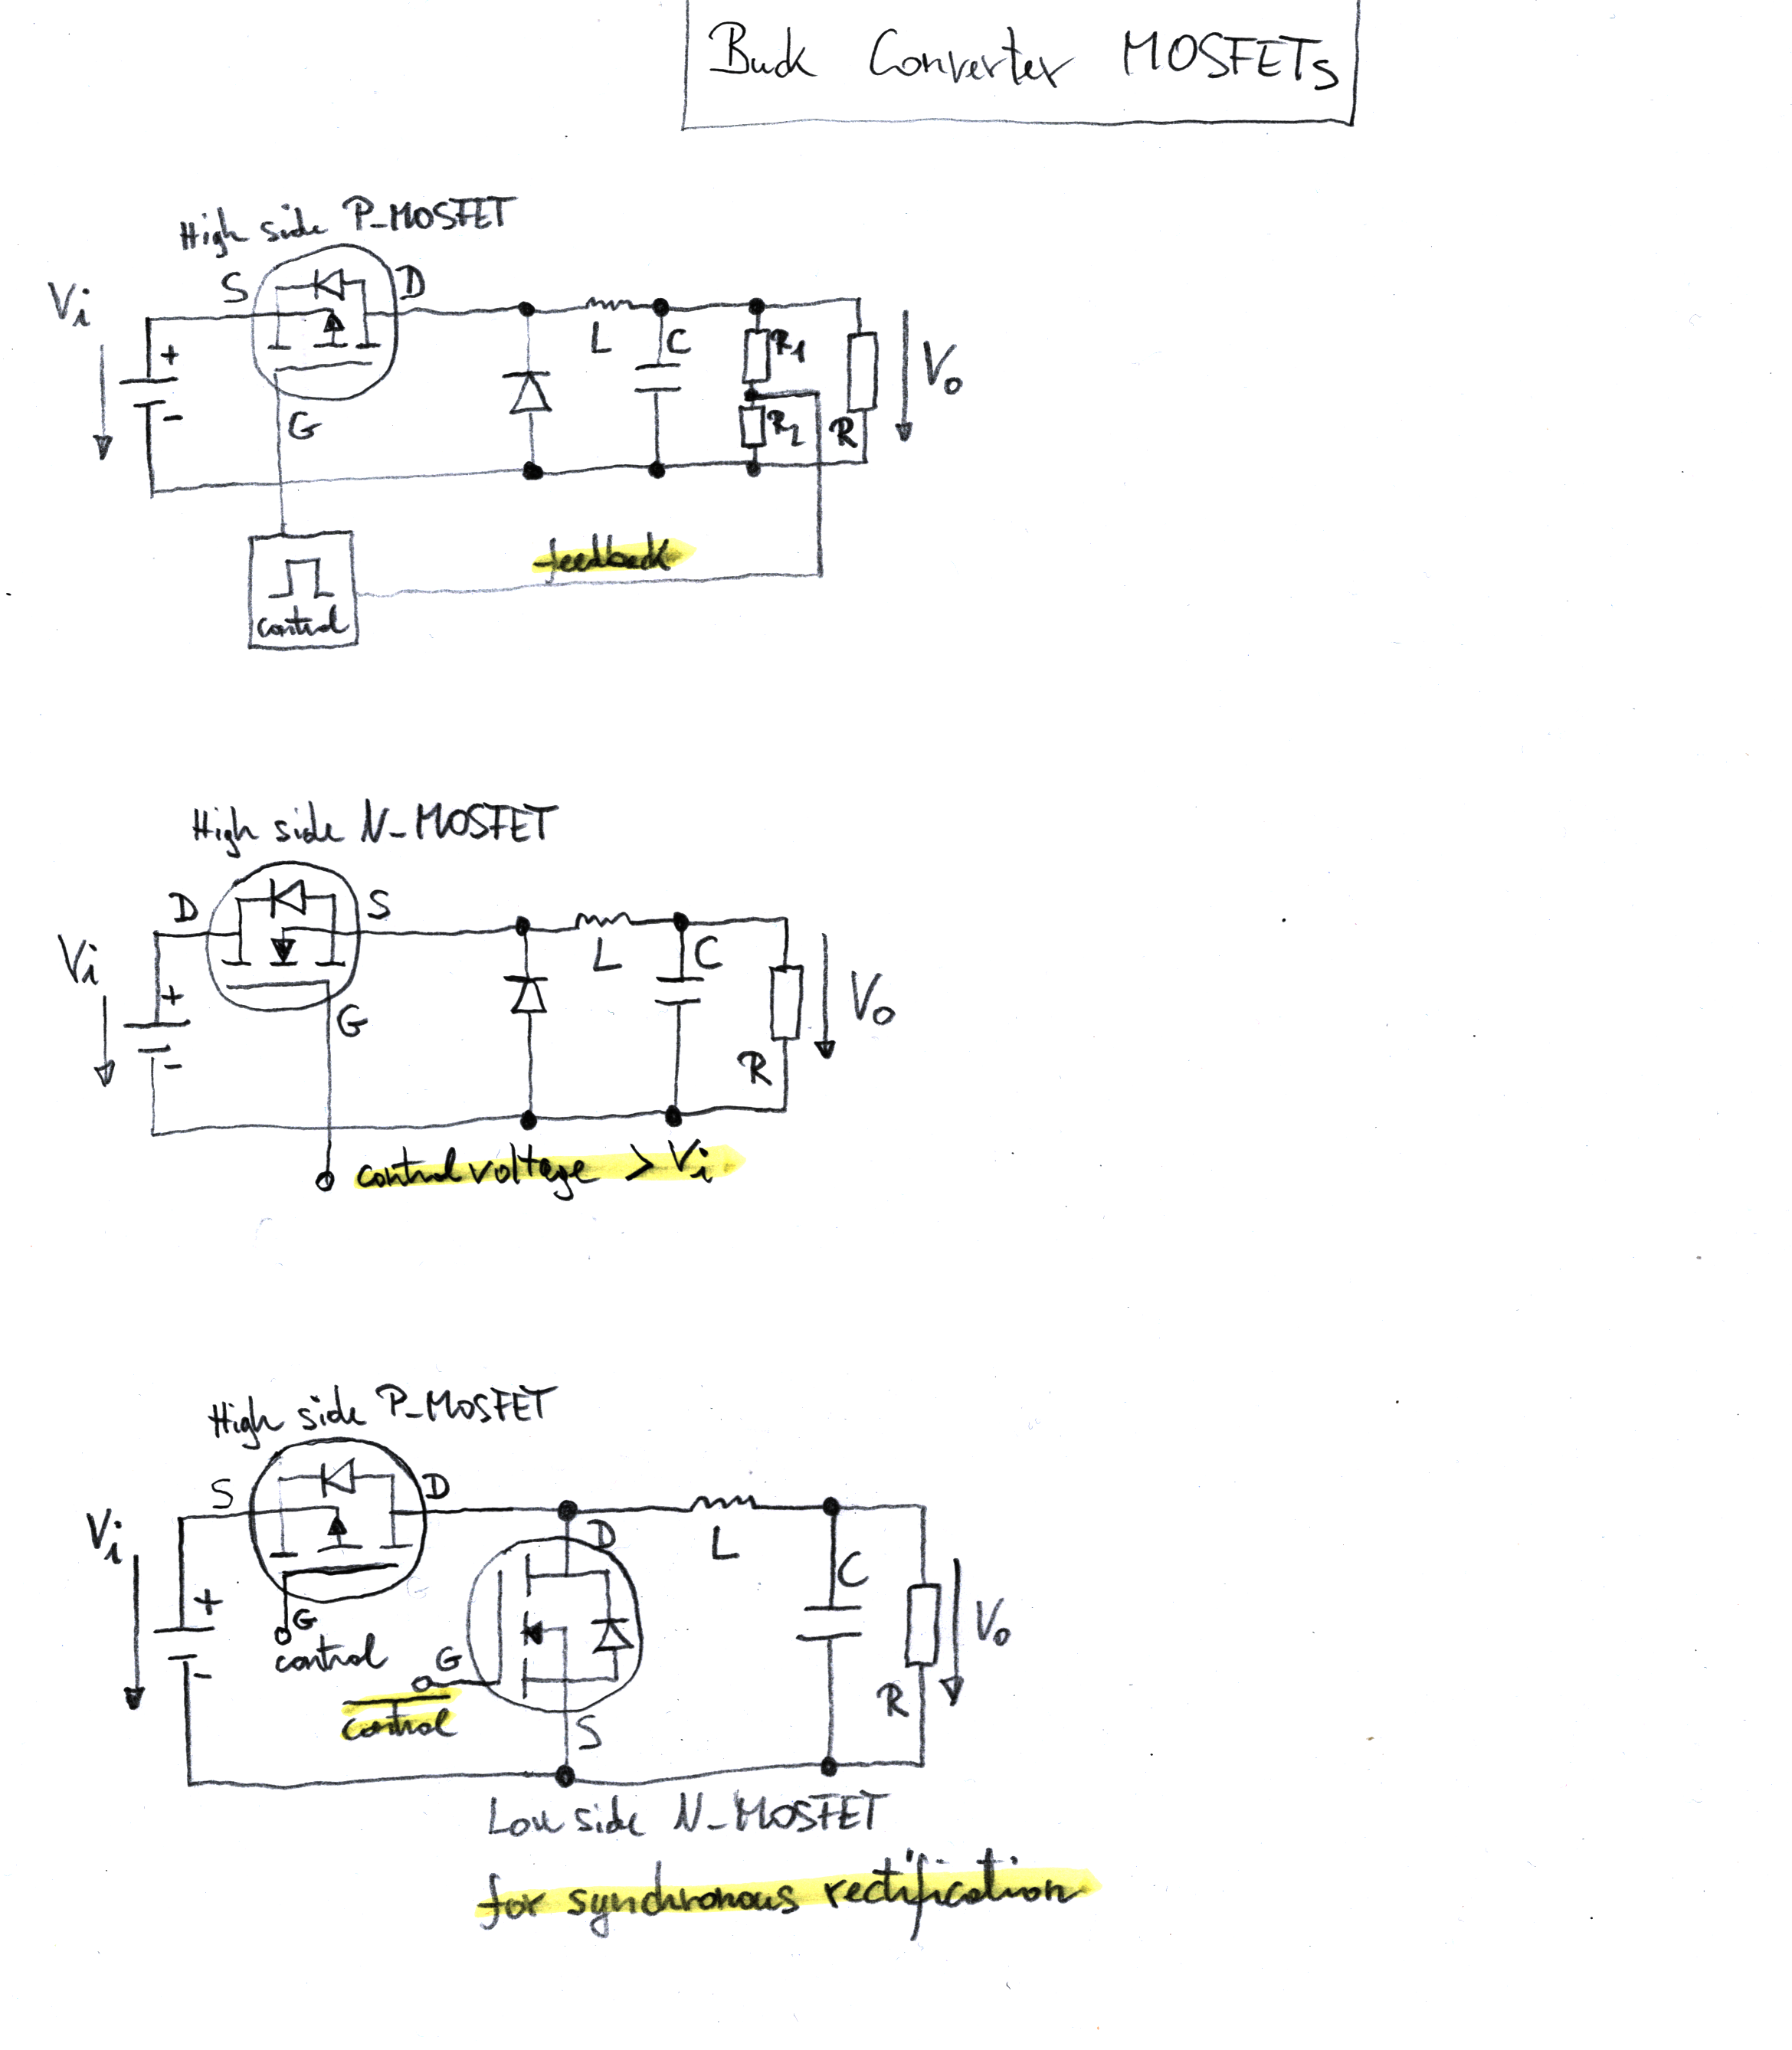 Buck Converter MOSFETs
High side P-MOSFET
S
D
Vi
+
-
G
L
C
R1
R2
R
Vo
feedback
control
High side N-MOSFET
D
S
Vi
+
-
G
L
C
R
Vo
control voltage > Vi
High side P-MOSFET
S
D
Vi
+
-
G
control
D
G
control
S
L
C
R
Vo
Low side N-MOSFET
for synchronous rectification